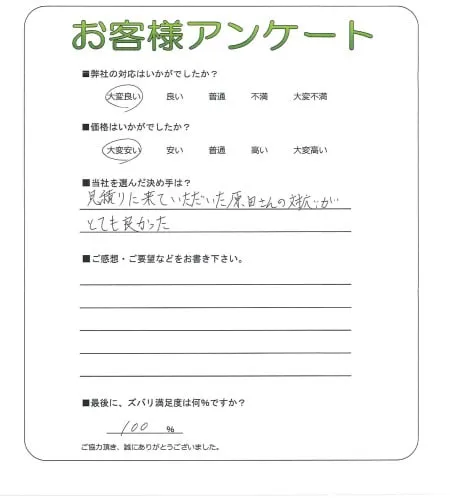 お客様アンケート
■弊社の対応はいかがでしたか？
大変良い 良い 普通 不満 大変不満
■価格はいかがでしたか？
大変安い 安い 普通 高い 大変高い
■当社を選んだ決め手は？
見積りに来ていただいた原田さんの対応が
とても良かった
■ご感想・ご要望などをお書き下さい。
■最後に、ズバリ満足度は何%ですか？
100 %
ご協力頂き、誠にありがとうございました。